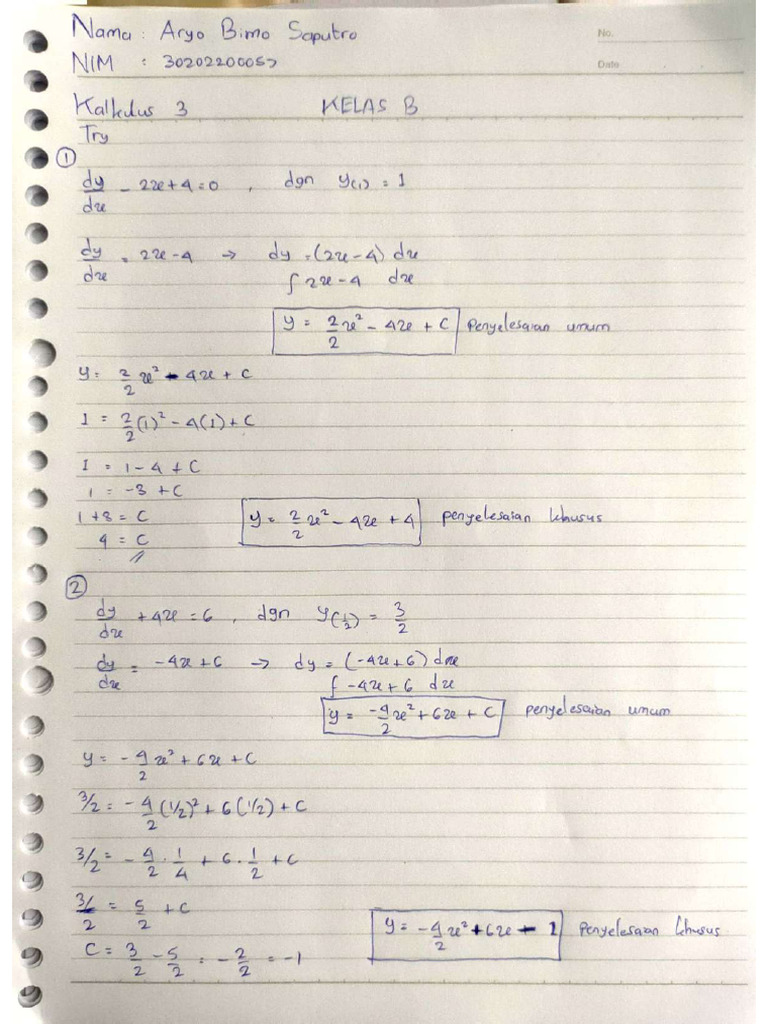 Nama : Aryo Bimo Saputro
No.
NIM : 30202200057
Date
Kalkulus 3 KELAS B
Try
① dy/dx - 2x + 4 = 0 , dgn y(1) = 1
dy/dx = 2x - 4 → dy = (2x - 4) dx
∫ 2x - 4 dx
y = 2/2 x² - 4x + C penyelesaian umum
y = 2/2 x² - 4x + C
1 = 2/2 (1)² - 4(1) + C
1 = 1 - 4 + C
1 = -3 + C
1 + 3 = C y = 2/2 x² - 4x + 4 penyelesaian khusus
4 = C //
② dy/dx + 4x = 6 , dgn y(1/2) = 3/2
dy/dx = -4x + 6 → dy = (-4x + 6) dx
∫ -4x + 6 dx
y = -4/2 x² + 6x + C penyelesaian umum
y = -4/2 x² + 6x + C
3/2 = -4/2 (1/2)² + 6 (1/2) + C
3/2 = -4/2 . 1/4 + 6 . 1/2 + C
3/2 = 5/2 + C
y = -4/2 x² + 6x - 1 Penyelesaian khusus
C = 3/2 - 5/2 = -2/2 = -1